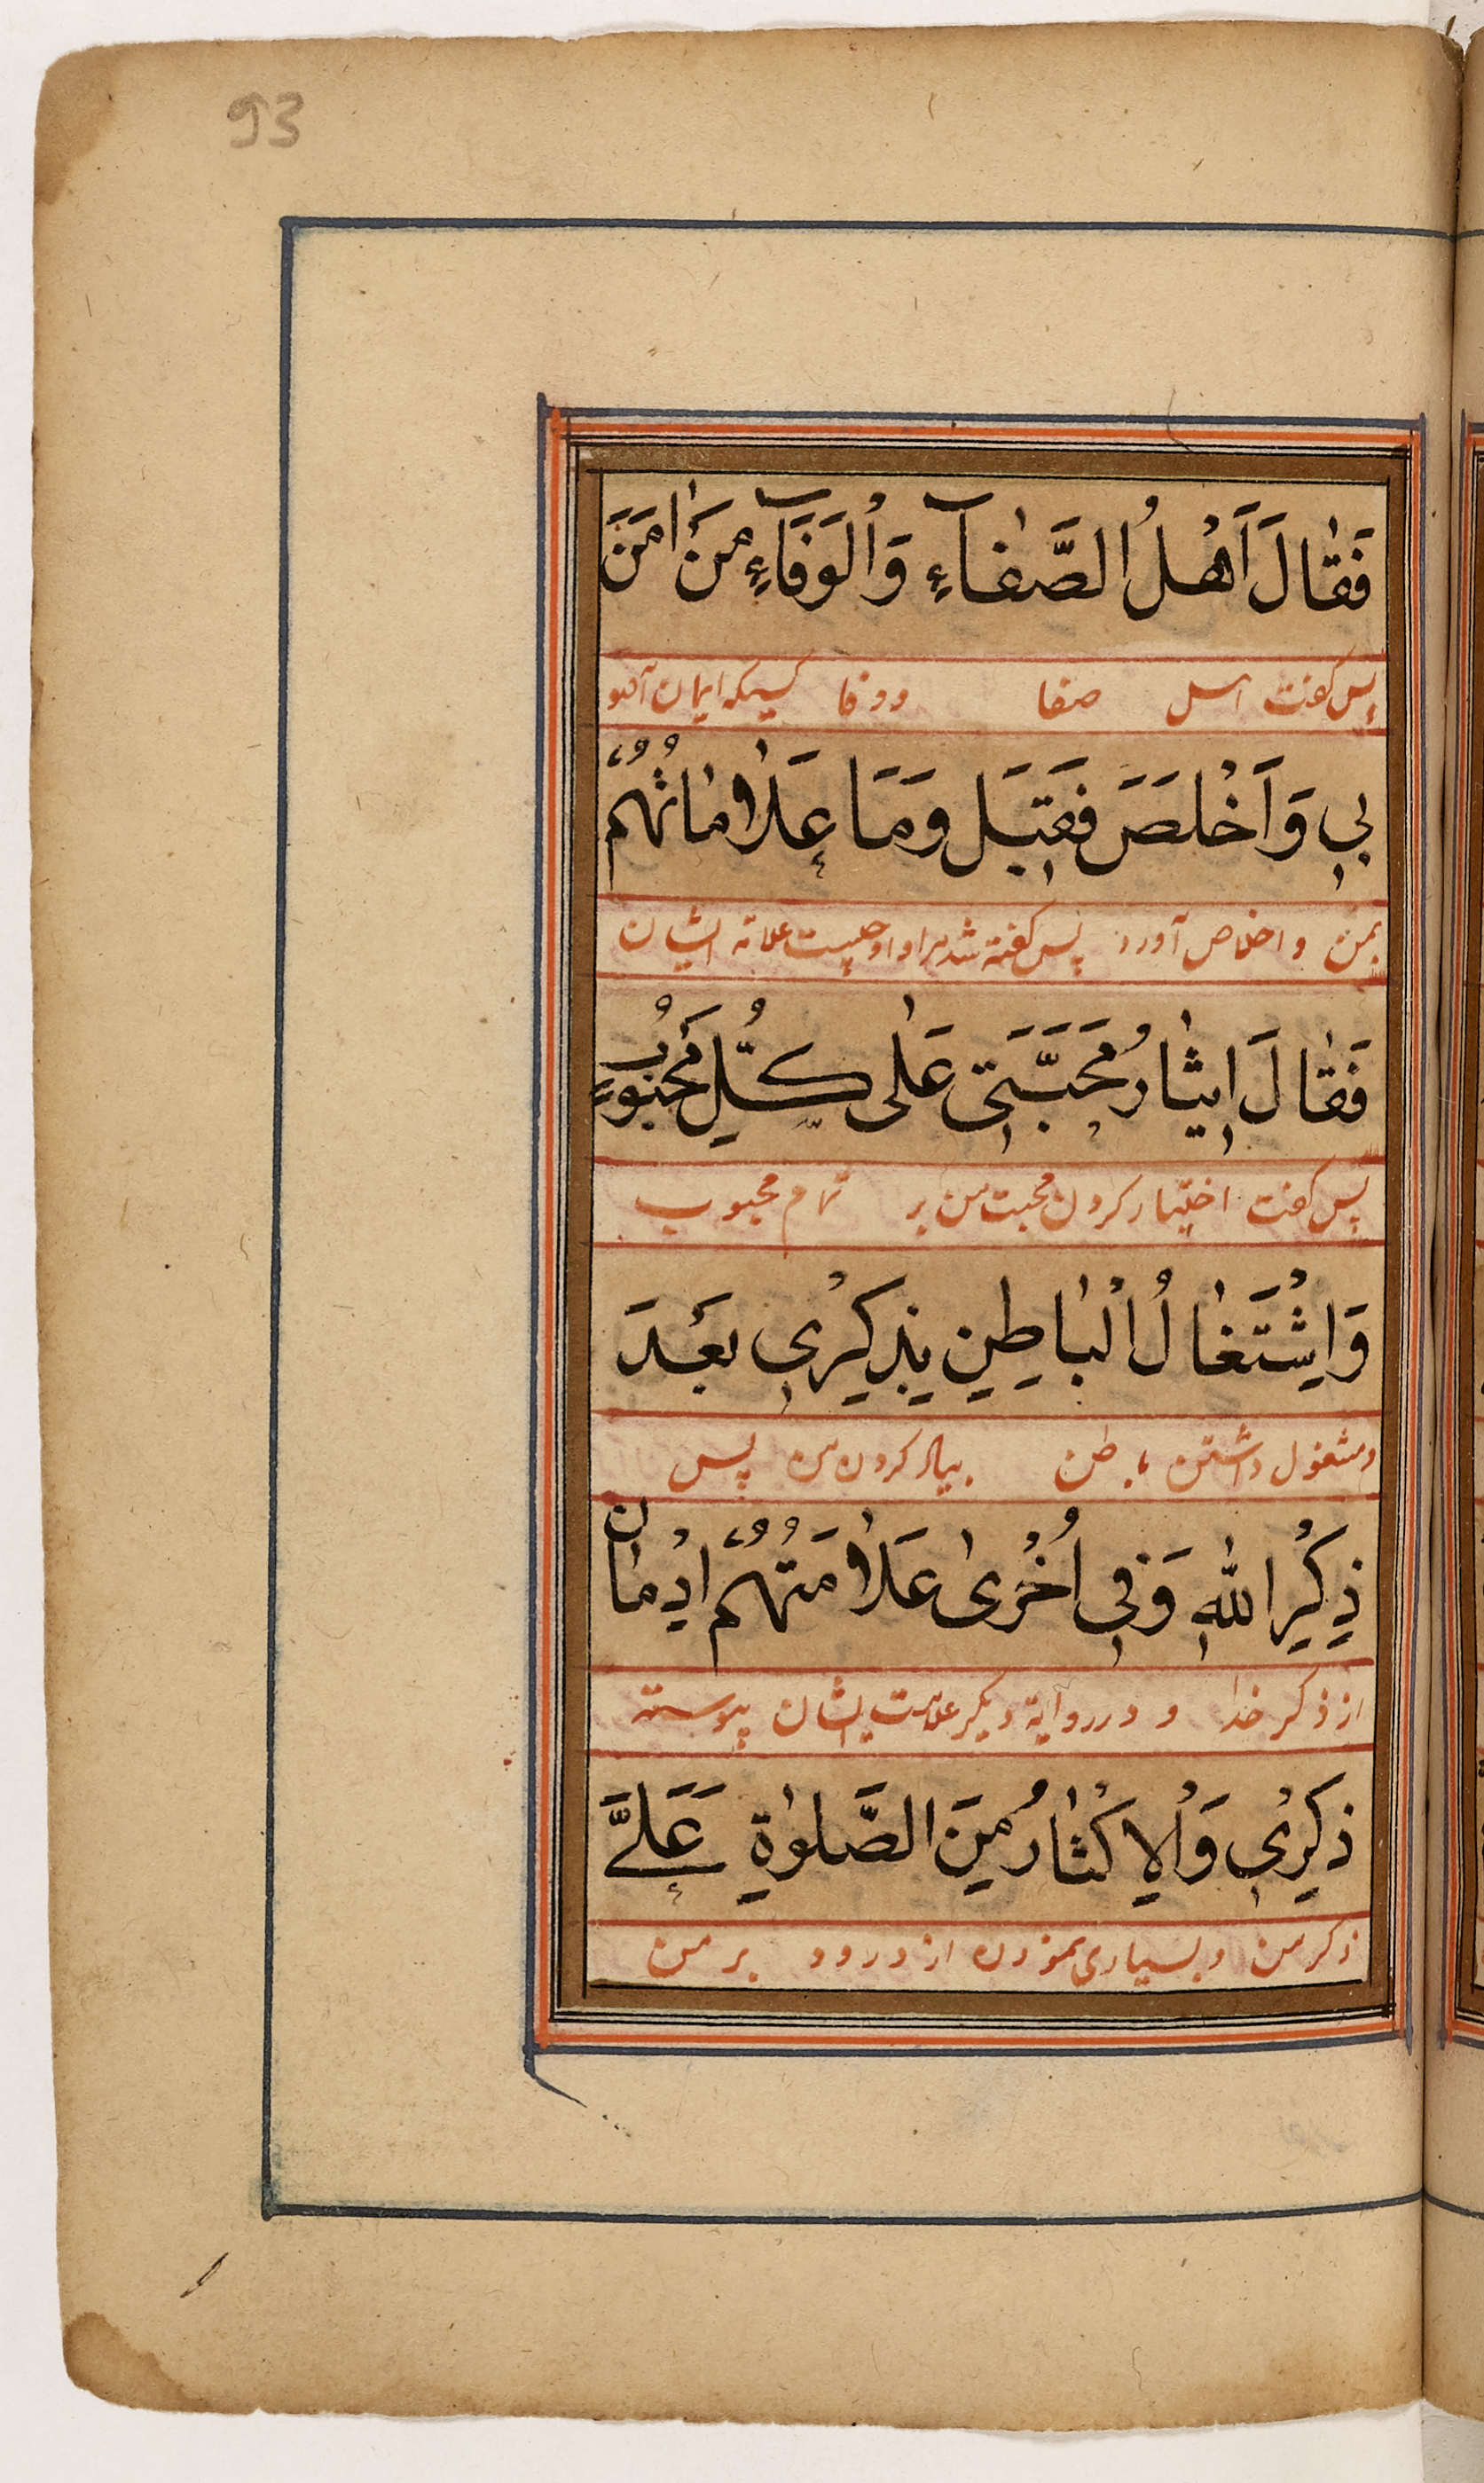 93
فَقٰالَ اَهْلُ الصَّفٰآءِ وَالْوَفَآءِ مَنْ اٰمَنَ
پس گفت اهل صفا و وفا کسیکه ایمان آورد
بِي وَاَخْلَصَ فَقِيَل وَمَا عَلٰامٰاتُهُمْ
بمن و اخلاص آورد پس گفته شد مر او را و چیست علامة ایشان
فَقٰالَ اِيثٰارُ مَحَبَّتِي عَلٰى كُلِّ مَحْبُوبٍ
پس گفت اختیار کردن محبت من بر تمام محبوب
وَاِشْتَغٰالُ الْبٰاطِنِ بِذِكِرْي بَعْدَ
و مشغول داشتن باطن بیاد کردن من پس
ذِكْرِ اللهِ وَفِي اُخْرٰى عَلٰامَتُهُمْ اِدْمٰان
از ذکر خدا و در روایة دیگر علامت ایشان پیوسته
ذِكِرْي وَالْاِكْثٰارُ مِنَ الصَّلوٰةِ عَلَيَّ
ذکر من و بسیاری نمودن از درود بر من